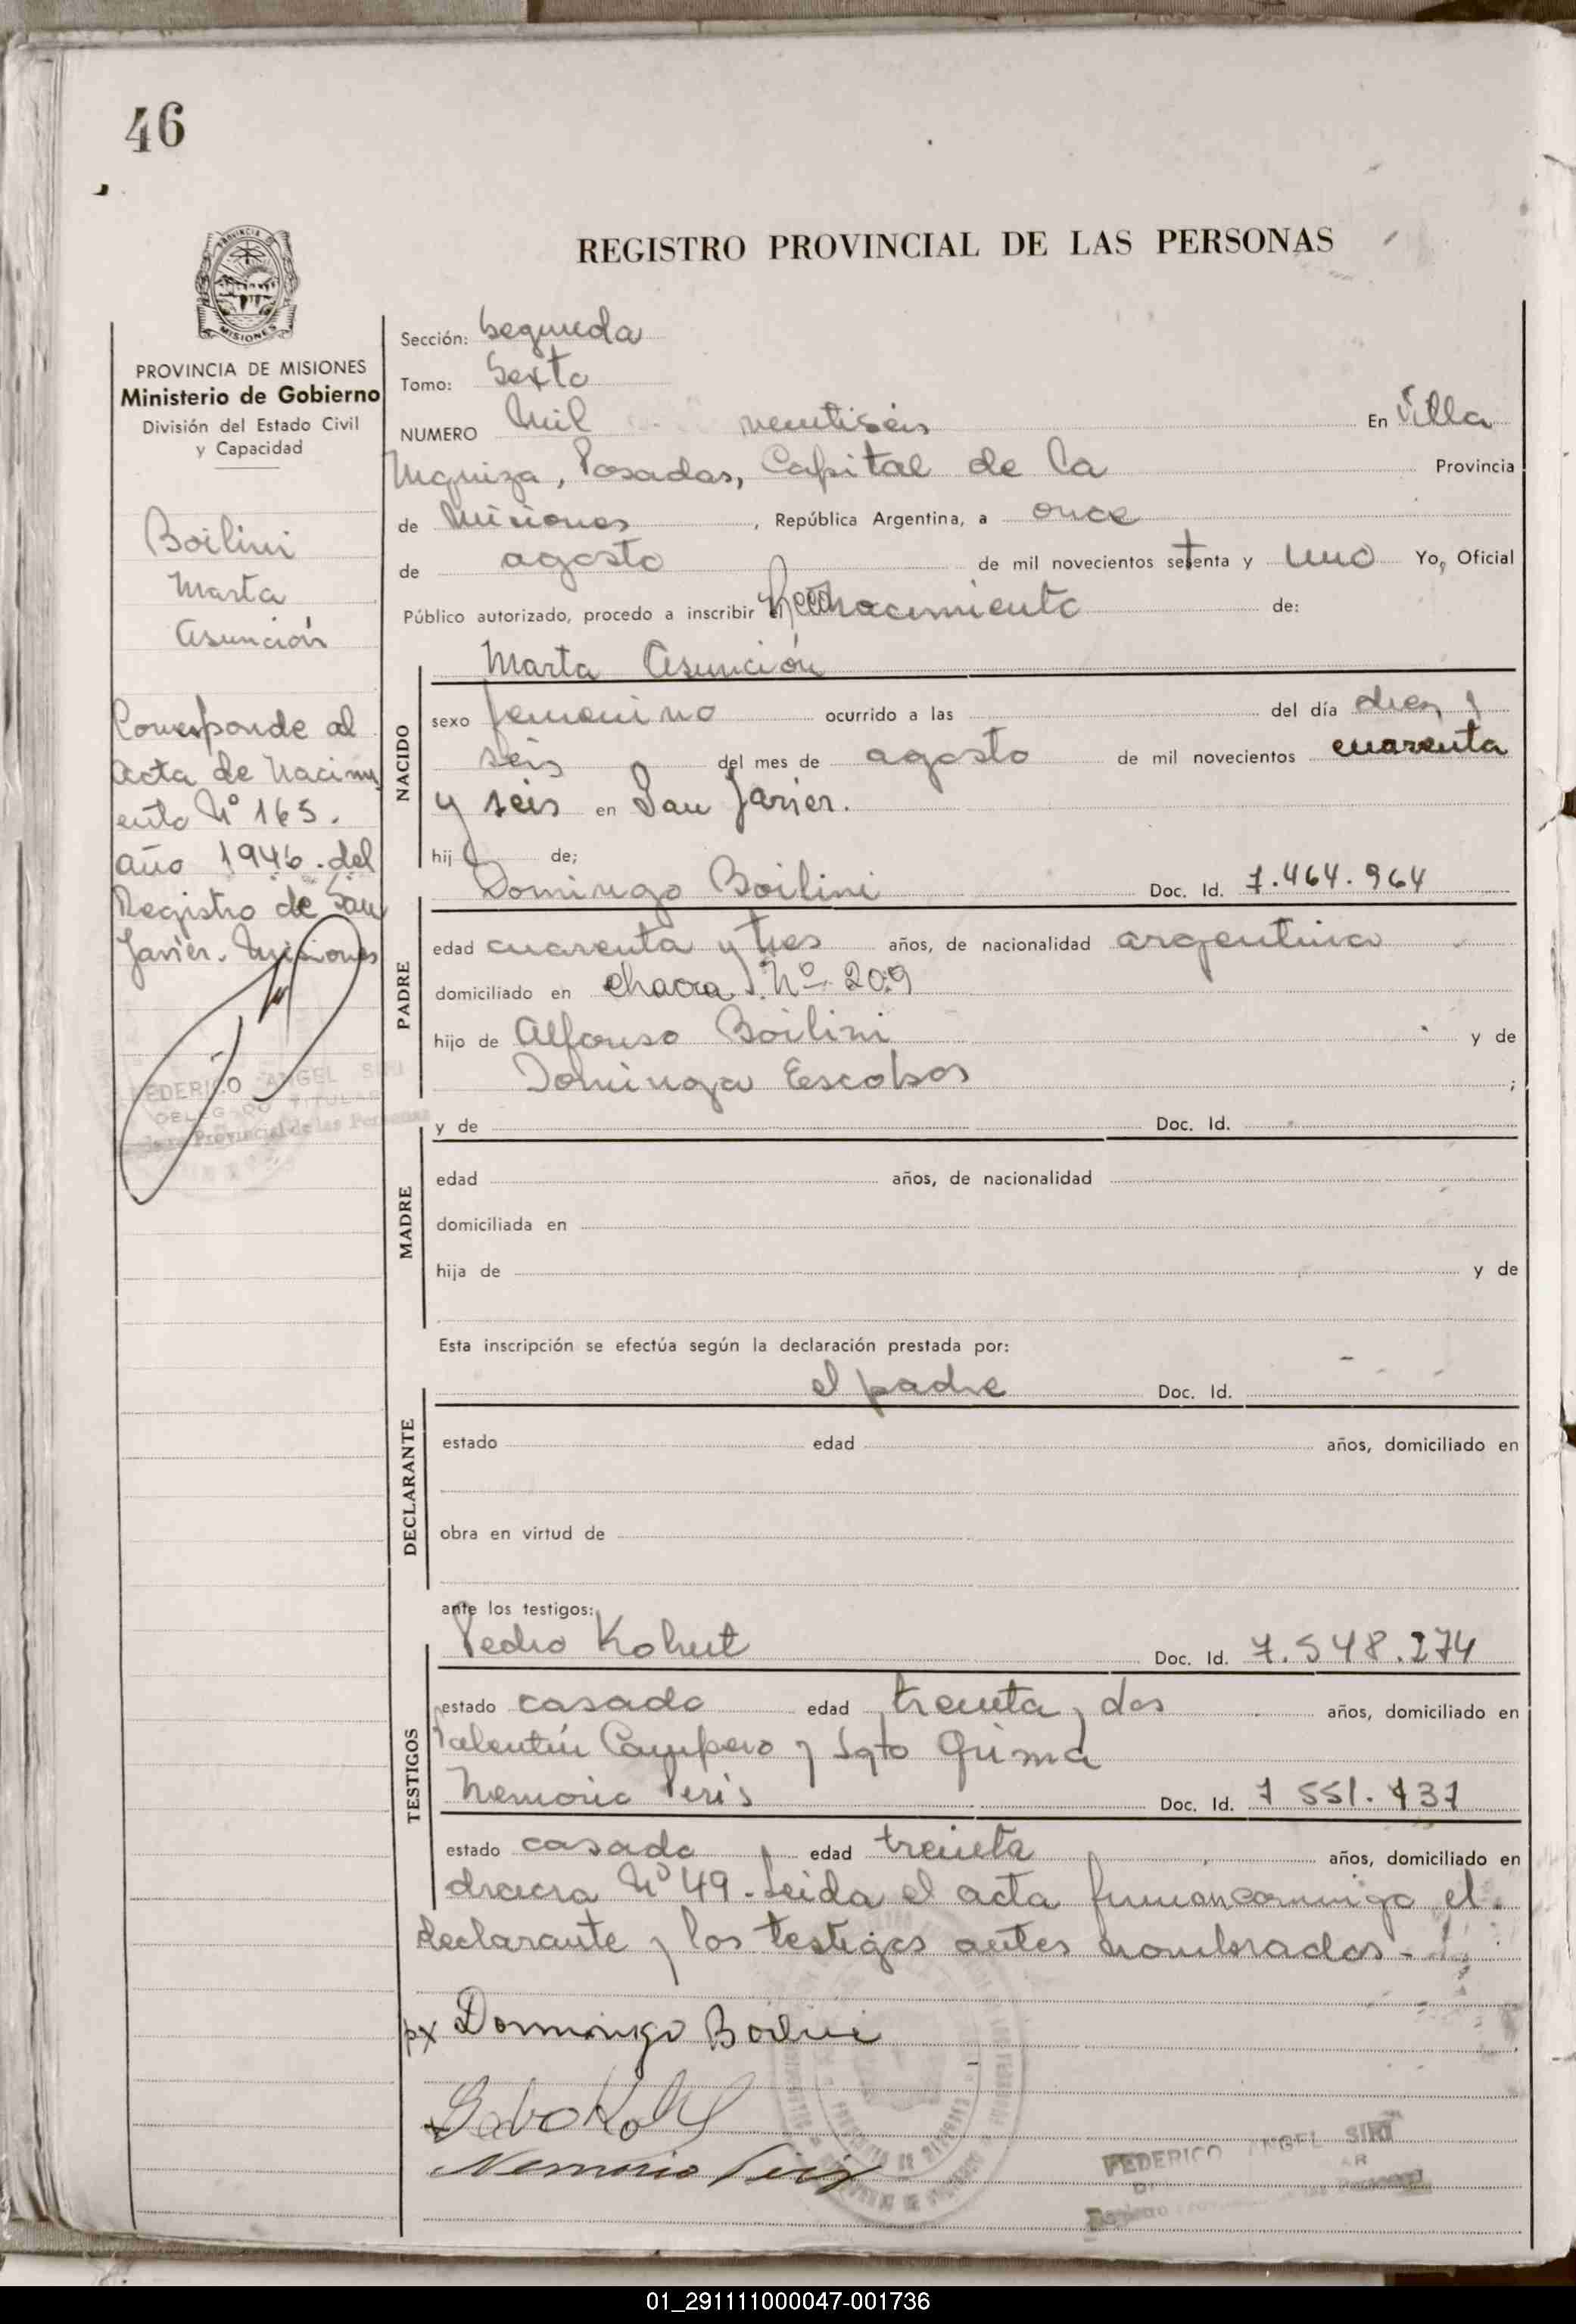 46
REGISTRO PROVINCIAL DE LAS PERSONAS
PROVINCIA DE MISIONES
MISIONES
PROVINCIA DE MISIONES
Ministerio de Gobierno
División del Estado Civil
y Capacidad
Boilini
Marta
Asunción
Corresponde al
acta de nacimi
ento Nº 165.
año 1946. del
Registro de San
Javier. Misiones
FEDERICO ANGEL SIRI
DELEGADO TITULAR
Provincial de las Personas
Sección: Segunda
Tomo: Sexto
NUMERO Mil veintiseis En Villa
Urquiza, Posadas, Capital de la Provincia
de Misiones, República Argentina, a once
de agosto de mil novecientos setenta y uno Yo, Oficial
Público autorizado, procedo a inscribir el de:
Marta Asunción
NACIDO
sexo femenino ocurrido a las del día diez y
seis del mes de agosto de mil novecientos cuarenta
y seis en San Javier.
hij de;
Domingo Boilini Doc. Id. 7.464.964
PADRE
edad cuarenta y tres años, de nacionalidad argentina
domiciliado en chacra Nº 209
hijo de Alfonso Boilini y de
Dominga Escobar ;
y de Doc. Id.
MADRE
edad años, de nacionalidad
domiciliada en
hija de y de
Esta inscripción se efectúa según la declaración prestada por:
el padre Doc. Id.
DECLARANTE
estado edad años, domiciliado en
obra en virtud de
ante los testigos:
Pedro Kohut Doc. Id. 7.548.274
TESTIGOS
estado casado edad treinta y dos años, domiciliado en
Campero y Sgto
Nemorio Peris Doc. Id. 7 551.737
estado casado edad treinta años, domiciliado en
chacra Nº 49. Leida el acta firman conmigo el
declarante y los testigos antes nombrados.-
px Domingo Boilini
Nemorio Peris
FEDERICO ANGEL SIRI
01_291111000047-001736